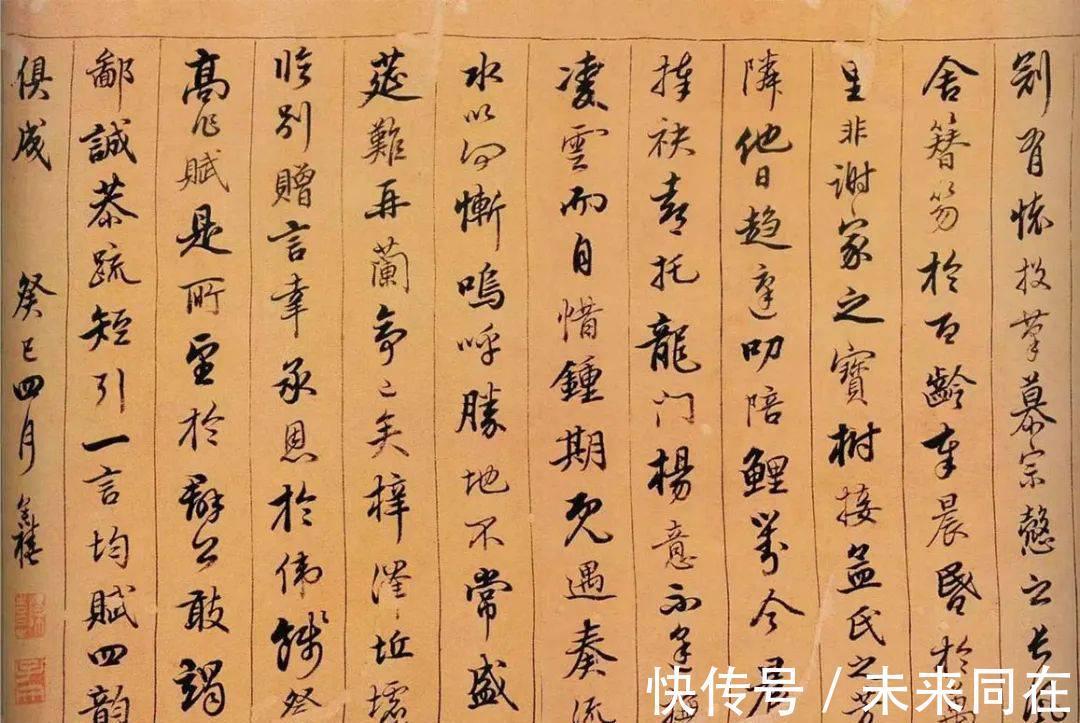 别有懷投筆慕宗愨之長風
舍簪笏於百齡奉晨昏於
里非謝家之寶樹接孟氏之芳
隣他日趨庭叨陪鯉對今晨
捧袂喜托龍門楊意不逢撫
凌雲而自惜鍾期既遇奏流
水以何慚嗚呼勝地不常盛
筵難再蘭亭已矣梓澤坵墟
臨別贈言幸承恩於偉餞
登高作賦是所望於群公敢竭
鄙誠恭疏短引一言均賦四韻
俱成 癸巳四月
快传号/未来同在